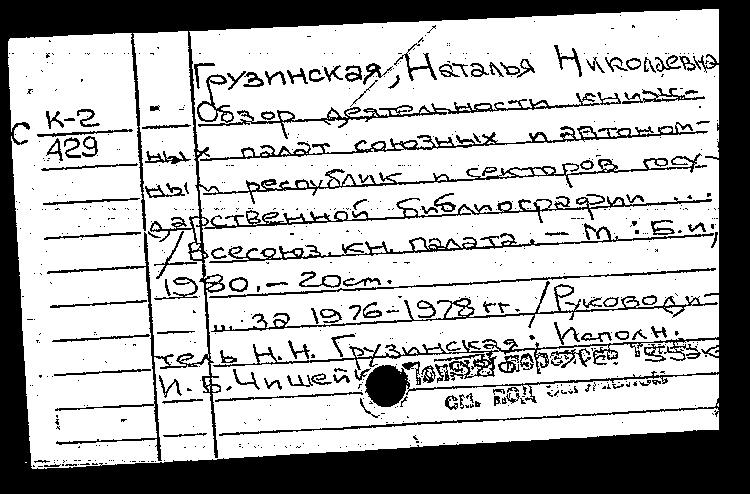 Грузинская, Наталья Николаевна
С К-2
429
Обзор деятельности книж-
ных палат союзных и автоном-
ных республик и секторов госу-
дарственной библиографии ...:
/ Всесоюз. кн. палата. – М. : Б.и;
1980. – 20 см.
... за 1976-1978 гг. / Руководи-
тель Н.Н. Грузинская; Исполн.
И. Б. Чишей
Полный перечень
см. под